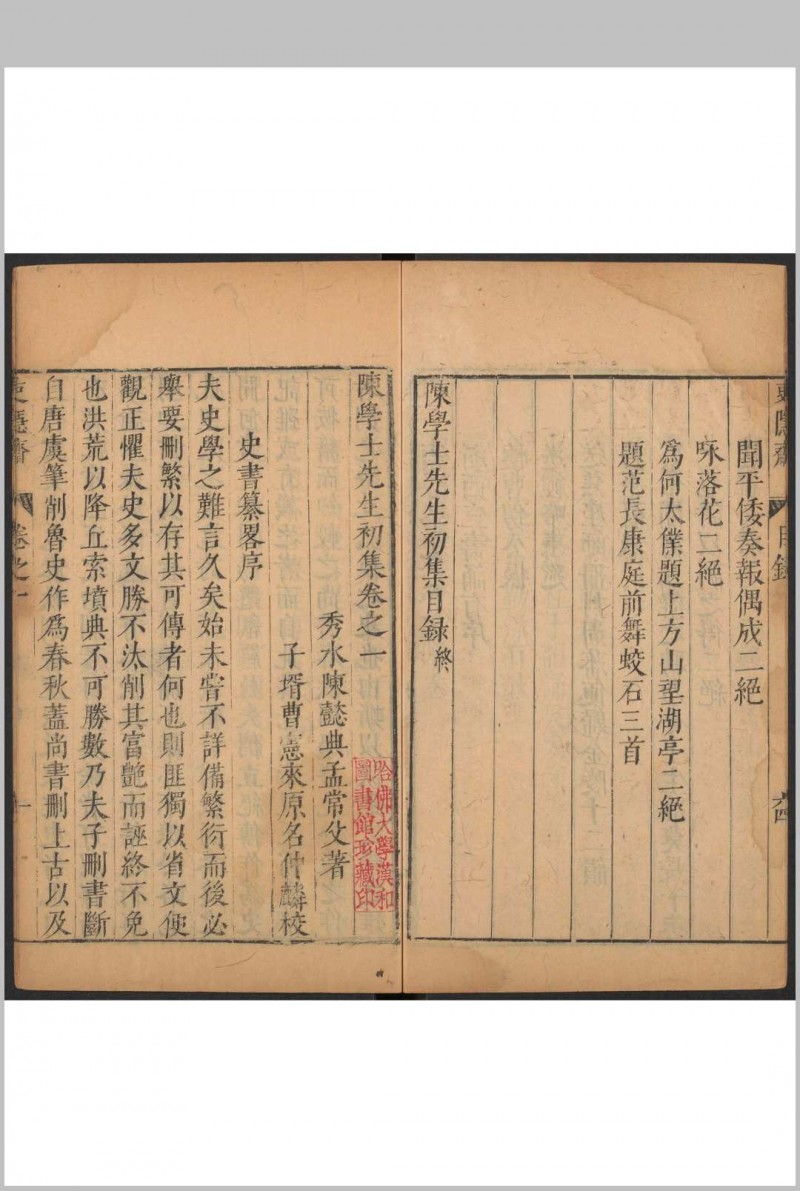 聞平倭奏報偶成二絕
咏落花二絕
為何太僕題上方山望湖亭二絕
題范長康庭前舞蛟石三首
陳學士先生初集目録終
陳學士先生初集卷之一
秀水陳懿典孟常父著
子壻曹憲來原名仲麟校
哈佛大學漢和
圖書館珍藏印
史書纂畧序
夫史學之難言久矣始未甞不詳備繁衍而後必
舉要刪繁以存其可傳者何也則匪獨以省文便
觀正懼夫史多文勝不汰削其富艷而誣終不免
也洪荒以降丘索墳典不可勝數乃夫子刪書斷
自唐虞筆削魯史作爲春秋蓋尚書刪上古以及
卷之一
一